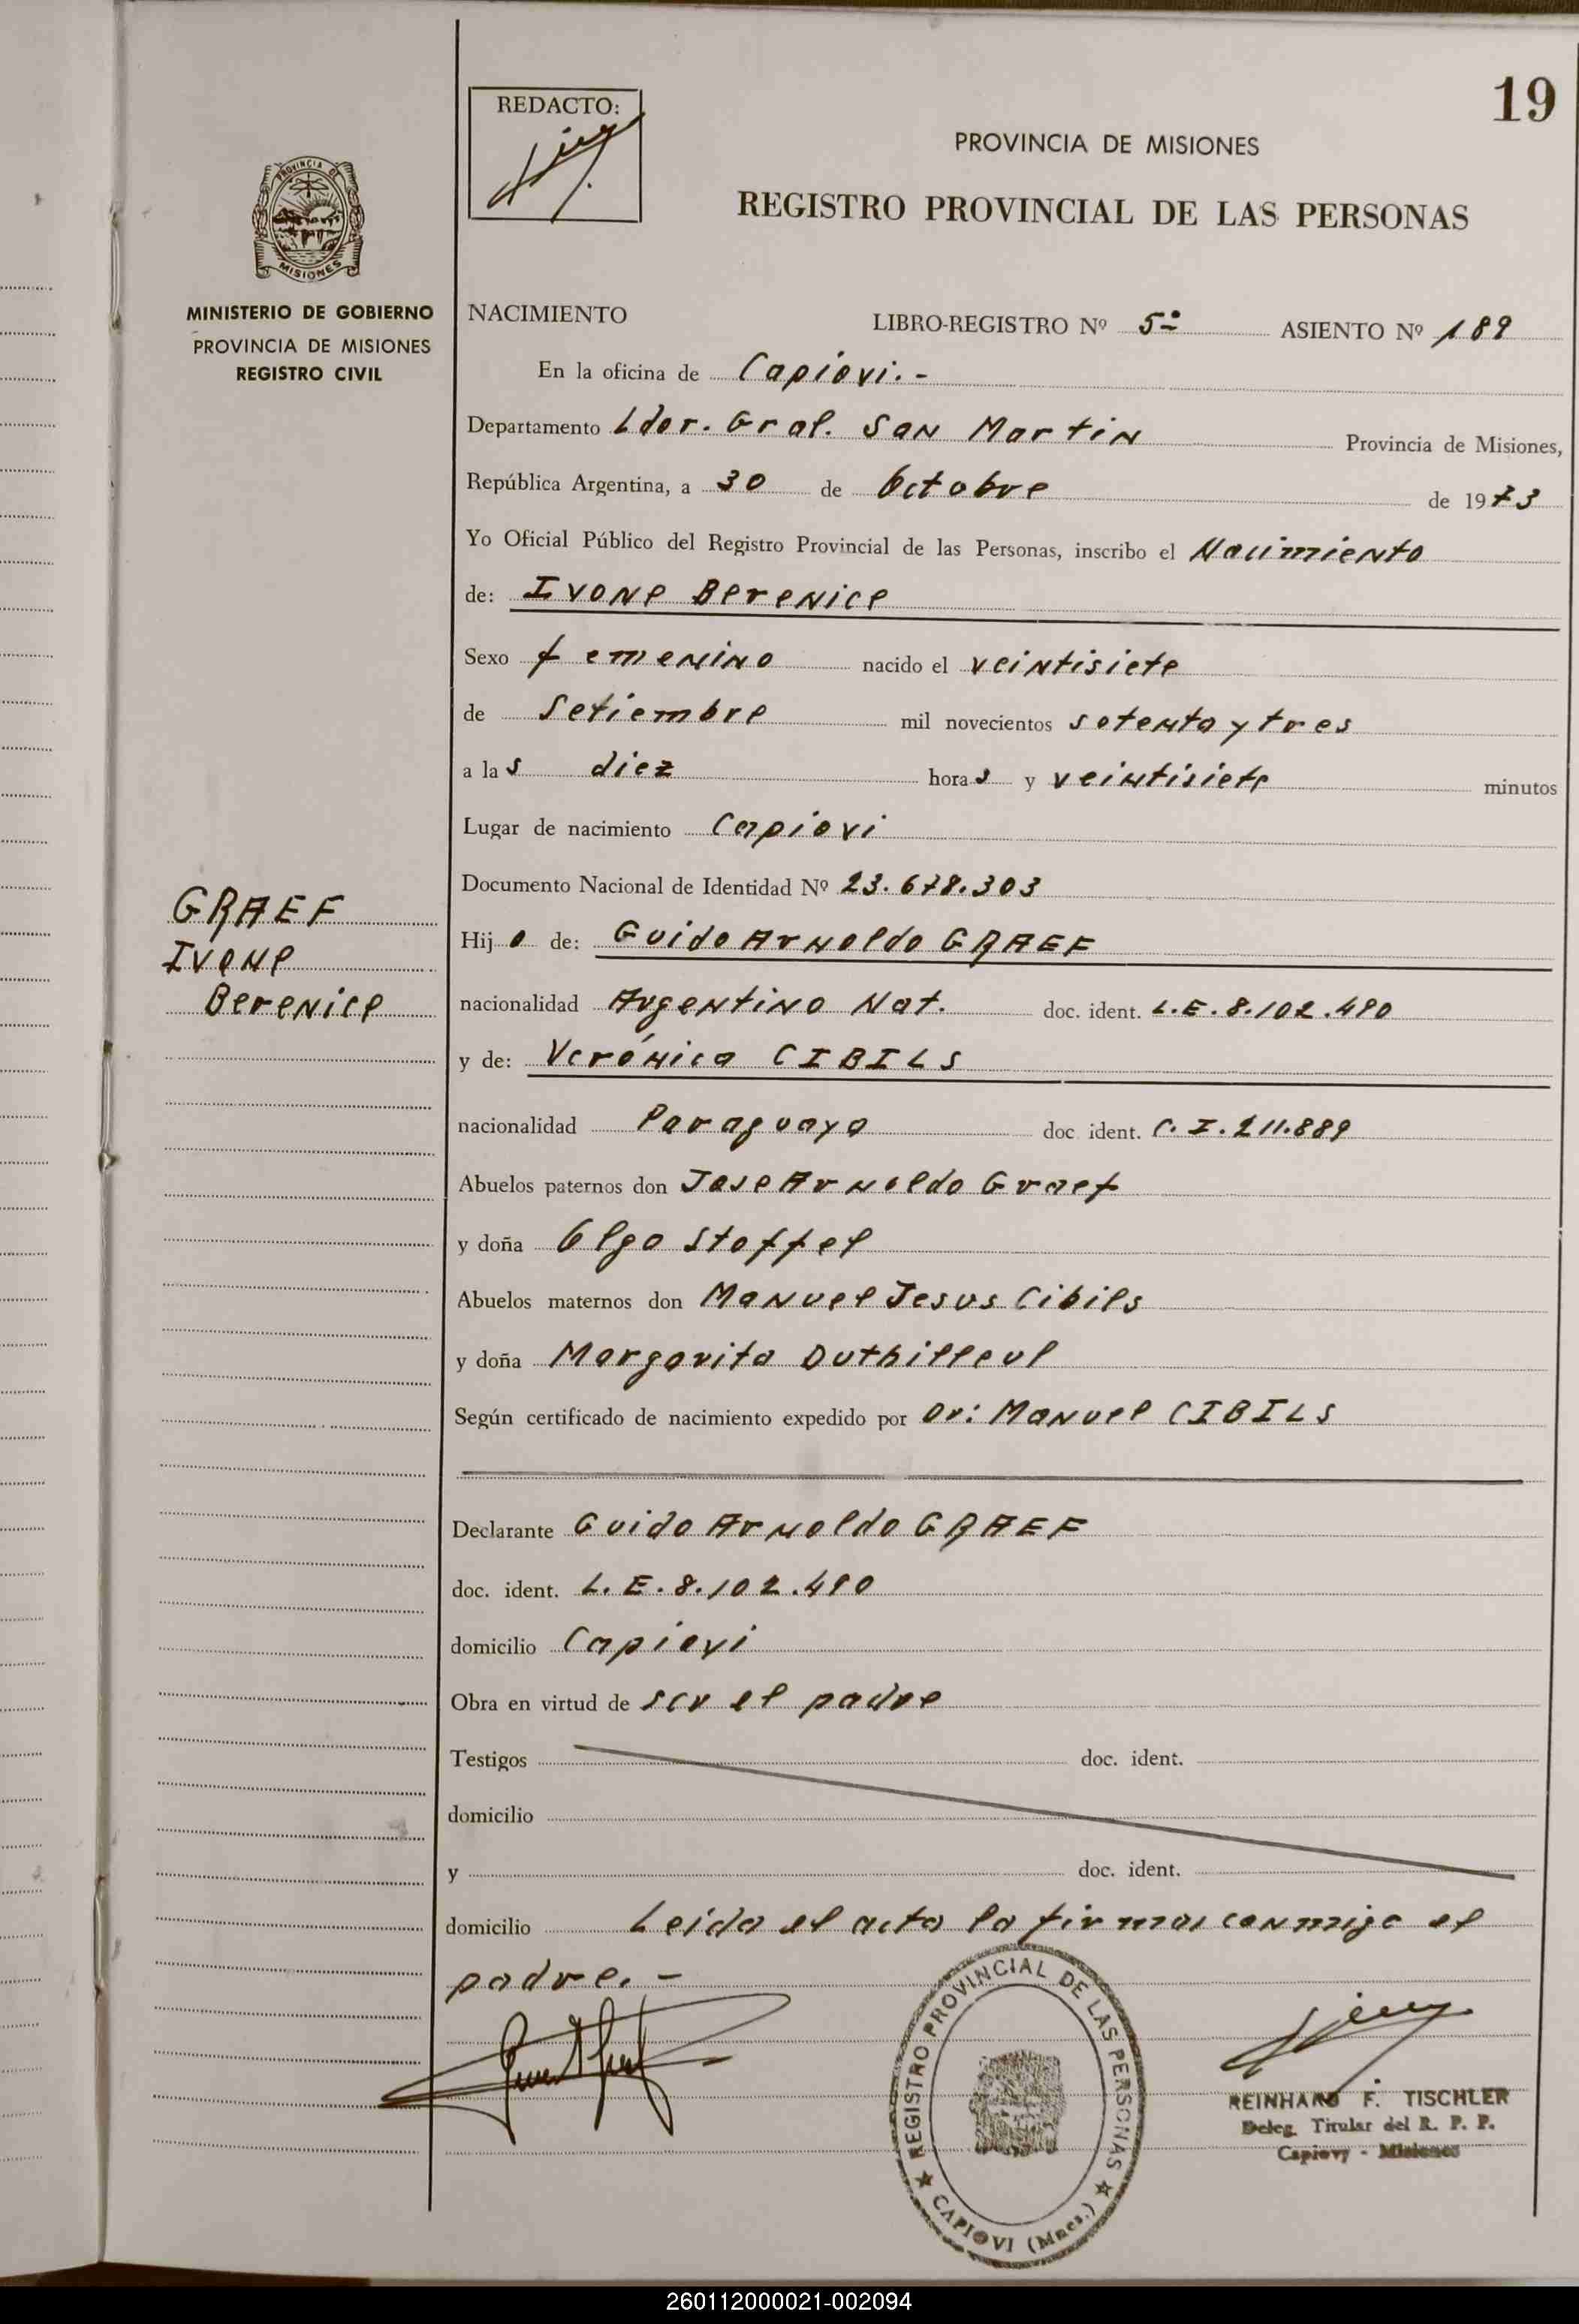 19
REDACTO:
PROVINCIA DE MISIONES
REGISTRO PROVINCIAL DE LAS PERSONAS
PROVINCIA DE
MISIONES
MINISTERIO DE GOBIERNO
PROVINCIA DE MISIONES
REGISTRO CIVIL
NACIMIENTO LIBRO-REGISTRO Nº 5º ASIENTO Nº 189
En la oficina de Capiovi.-
Departamento Lder. Gral. San Martin Provincia de Misiones,
República Argentina, a 30 de Octobre de 1973
Yo Oficial Público del Registro Provincial de las Personas, inscribo el Nacimiento
de: Ivone Berenice
Sexo femenino nacido el veintisiete
de Setiembre mil novecientos setenta y tres
a las diez horas y veintisiete minutos
Lugar de nacimiento Capiovi
Documento Nacional de Identidad Nº 23.678.303
GRAEF
Ivone
Berenice
Hijo de: Guido Arnoldo GRAEF
nacionalidad Argentino Nat. doc. ident. L.E. 8.102.490
y de: Verónica CIBILS
nacionalidad Paraguaya doc ident. C.I. 211.889
Abuelos paternos don Jose Arnoldo Graef
y doña Olga Stoffel
Abuelos maternos don Manuel Jesus Cibils
y doña Margarita Duthilleul
Según certificado de nacimiento expedido por Dr: Manuel CIBILS
Declarante Guido Arnoldo GRAEF
doc. ident. L.E. 8.102.490
domicilio Capiovi
Obra en virtud de ser el padre
Testigos doc. ident.
domicilio
y doc. ident.
domicilio Leida el acta la firma conmigo el
padre.-
REGISTRO PROVINCIAL DE LAS PERSONAS
CAPIOVI (Mnes.)
REINHARD F. TISCHLER
Deleg. Titular del R. P. P.
Capiovy - Misiones
260112000021-002094